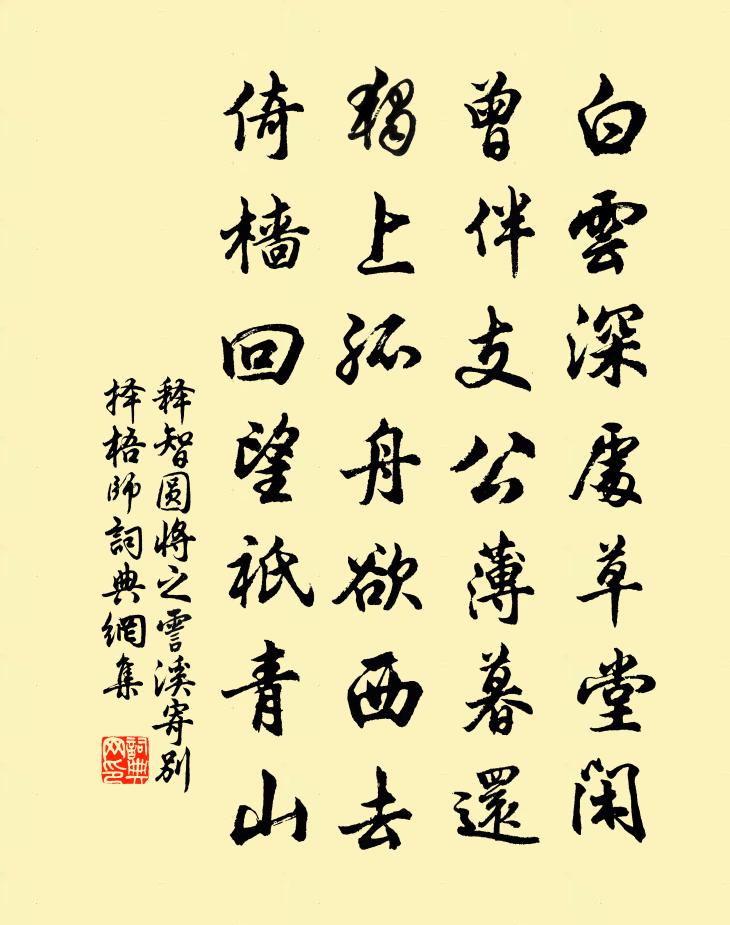 白雲深處草堂閑
曾伴支公薄暮還
獨上孤舟欲西去
倚檣回望祇青山
释智圆将之霅溪寄別
择梧師詞典網集
詞典网印